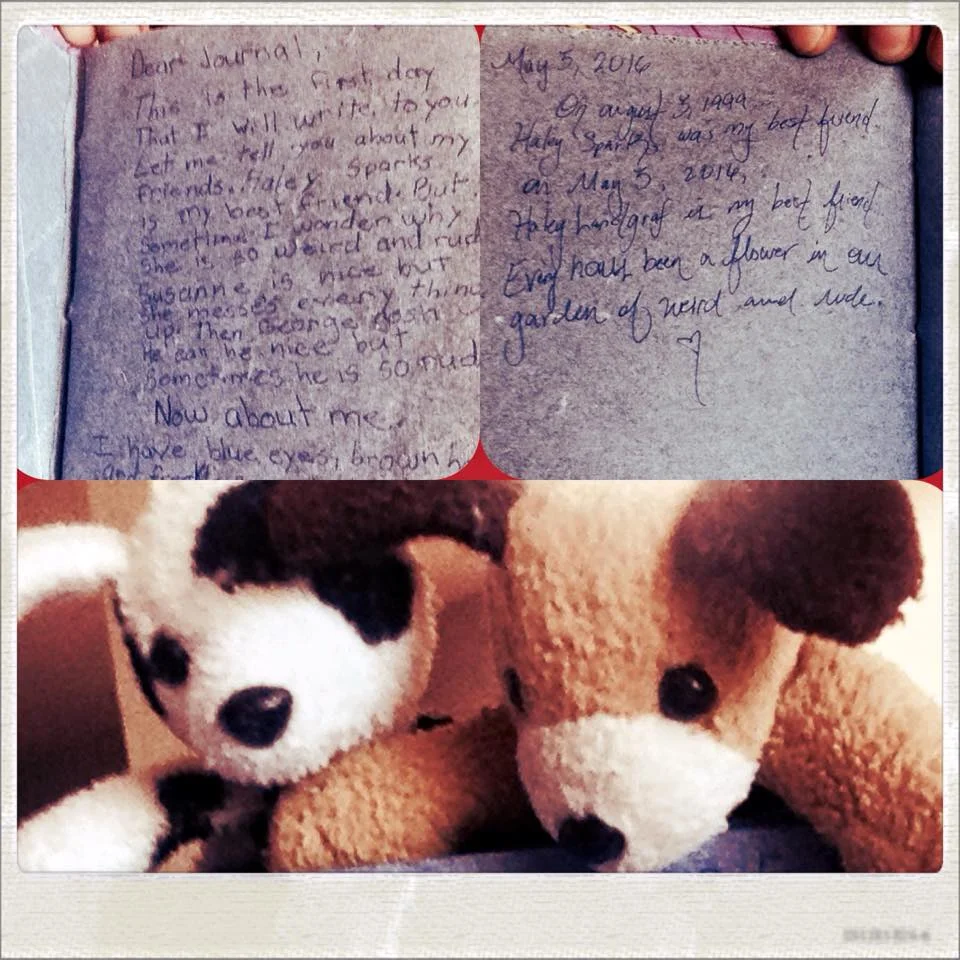 Dear Journal,
This is the first day
That I will write to you.
Let me tell you about my
friends. Haley Sparks
is my best friend. But
sometimes I wonder why
she is so weird and rud
Susanne is nice but
she messes every thing
up. Then George
He can be nice but
sometimes he is so rud
Now about me.
I have blue eyes, brown h
and
May 5, 2016
On august 3, 1999
Haley Sparks was my best friend.
on May 5, 2016,
Haley Landgraf is my best friend.
Every hour been a flower in our
garden of weird and rude.